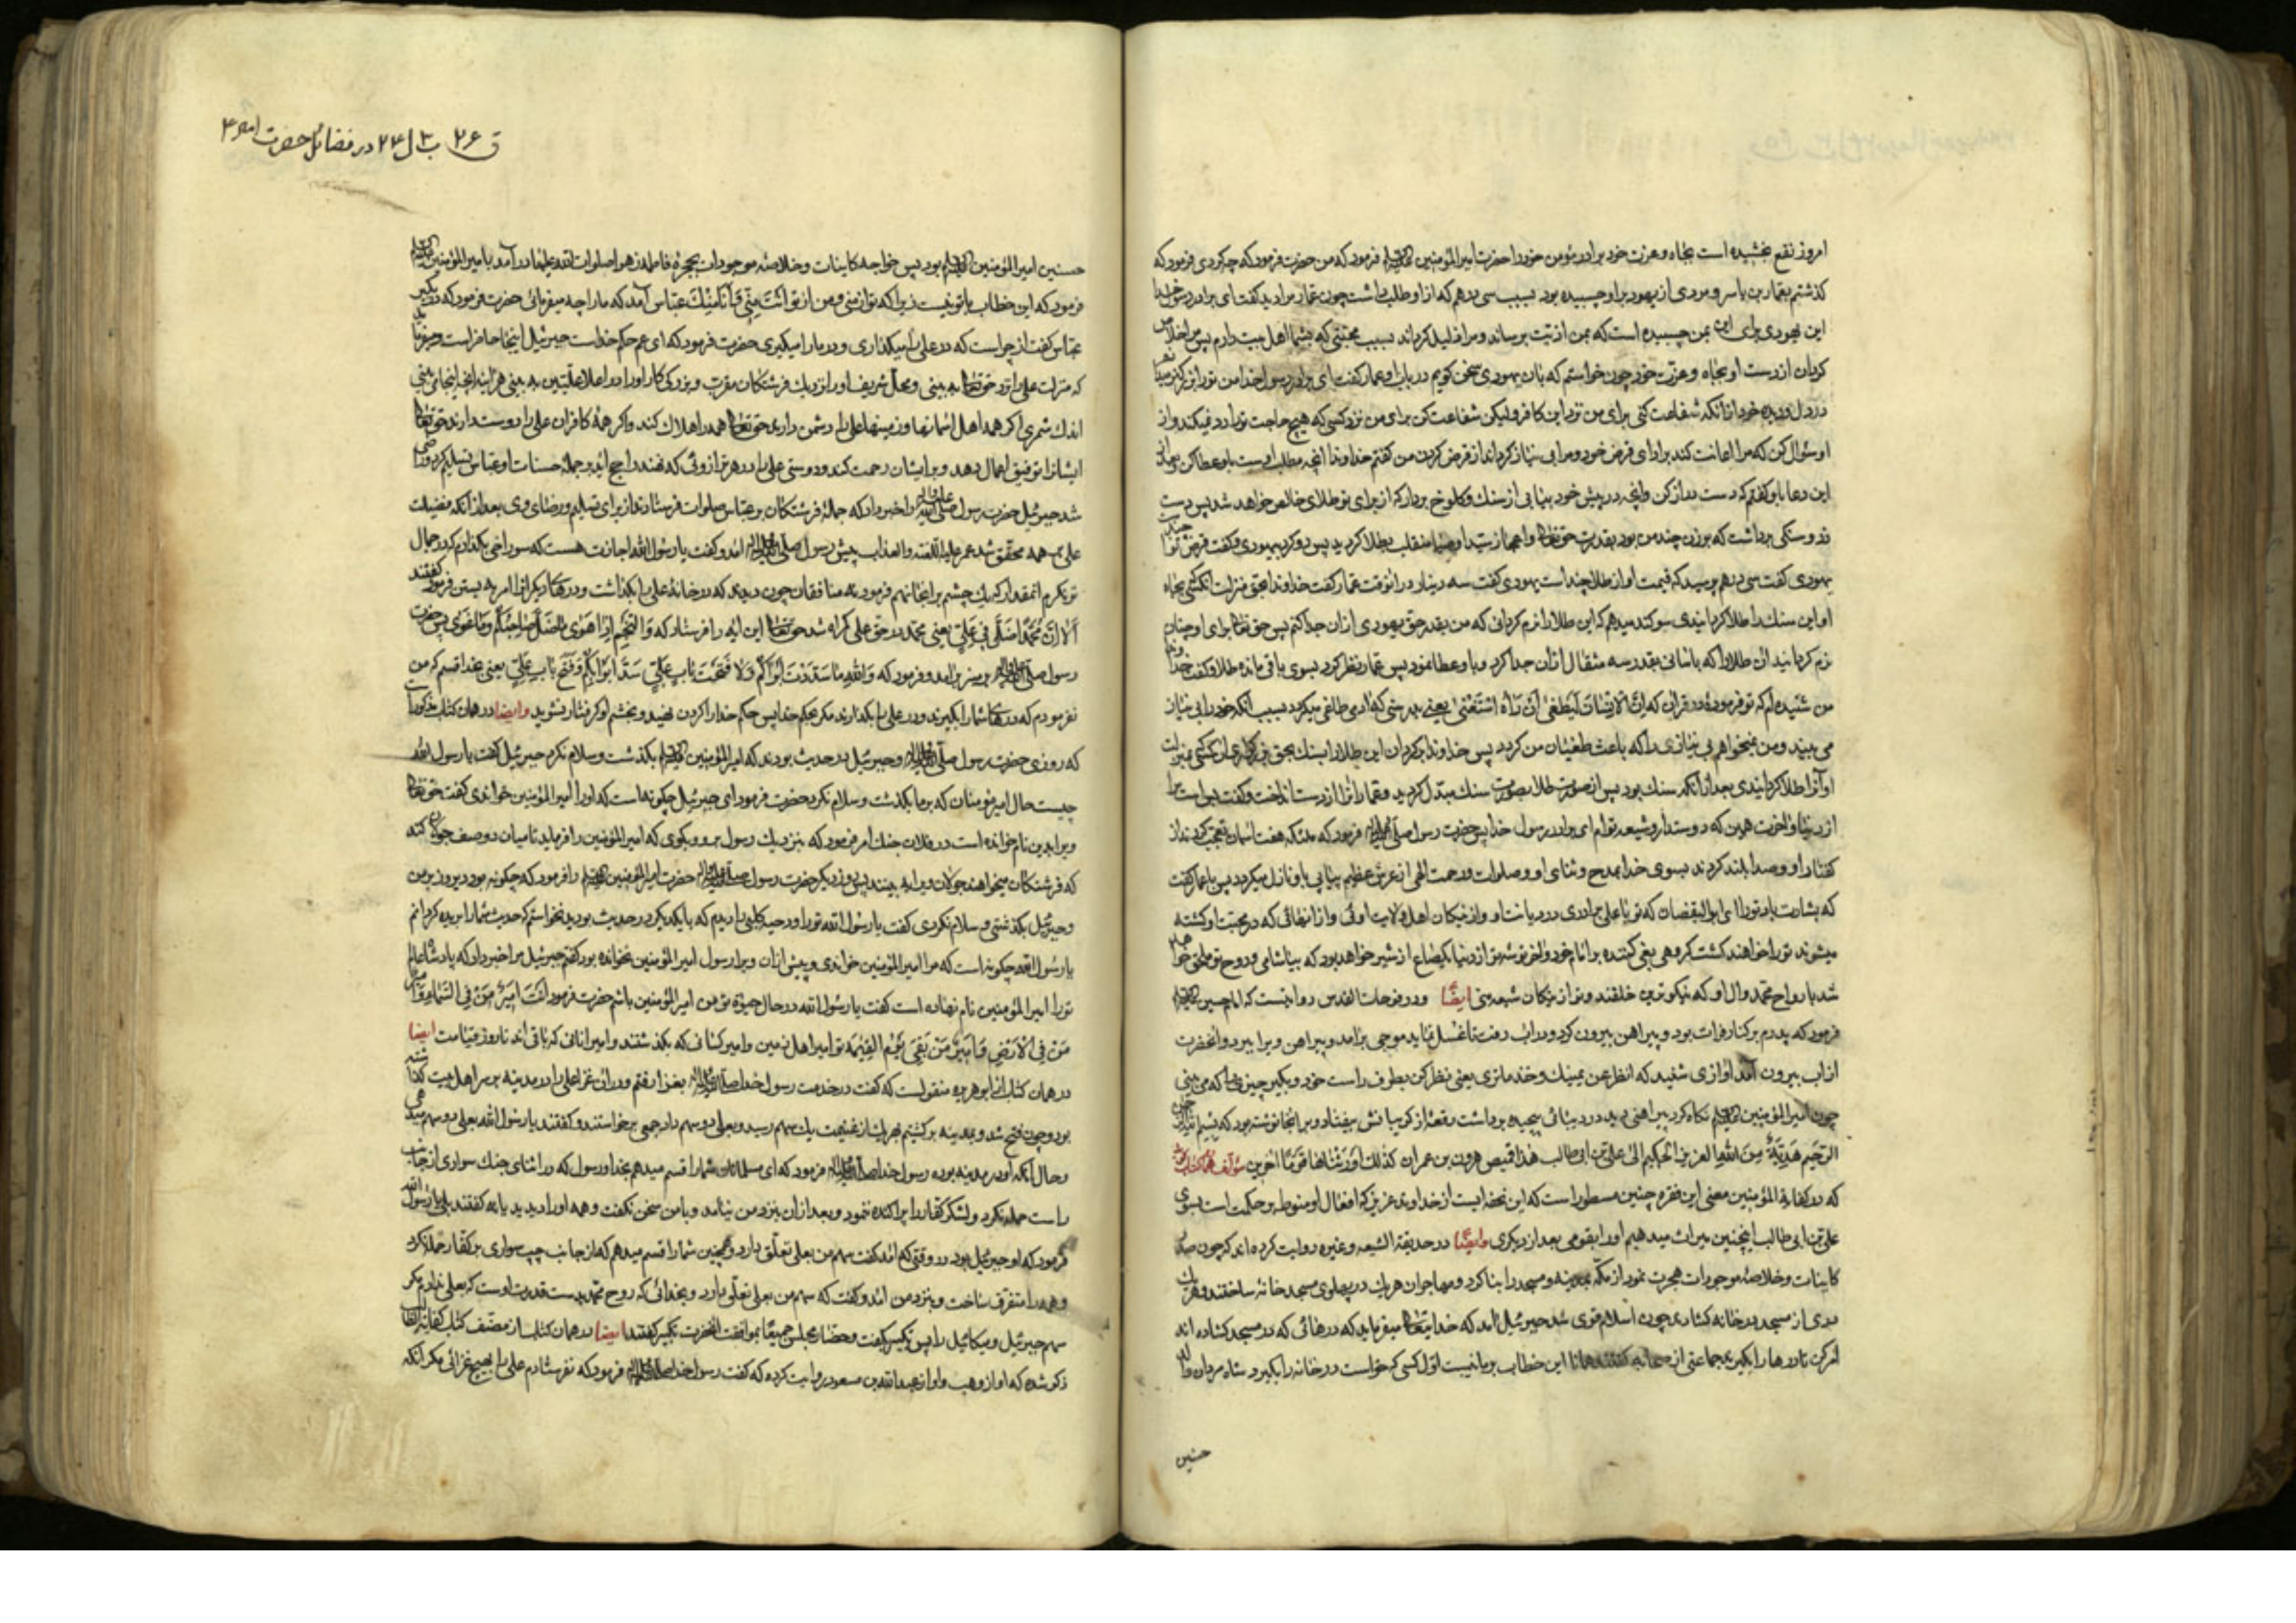 امروز نفع بخشیده است بجاه و عزت خود برادر مؤمن خود را حضرت امیر المؤمنین فرمود که من حضرت فرمود که چه کردی فرمود که
گذشتم بعمار بن یاسر و مردی از یهود بر او چسبیده بود بسبب سی درهم که از او طلب داشت چون عمار مرا دید گفت ای برادر رسول خدا
این یهودی برای این بمن چسبیده است که بمن اذیت برساند و مرا ذلیل گرداند بسبب محبتی که بشما اهل بیت دارم پس مرا خلاص
گردان از دست او بجاه و عزت خود چون خواستم که بان یهودی سخن گویم در باب او عمار گفت ای برادر رسول خدا من تو را بزرگتر میدانم
در دل و دیده خود از آنکه شفاعت کنی برای من نزد این کافر ولیکن شفاعت کن برای من نزد کسی که هیچ حاجت تو را رد نمیکند و از
او سؤال کن که مرا اعانت کند بر ادای قرض خود و مرا بی نیاز گرداند از قرض کردن من گفتم خداوندا آنچه مطلب اوست باو عطا کن
این دعا باو گفتم که دست دراز کن و آنچه در پیش خود بیابی از سنک و کلوخ بردار که از برای تو طلای خالص خواهد شد پس دست
زد و سنکی برداشت که بوزن چند من بود بقدرت حق تعالی منقلب بطلا گردید پس رو کرد بیهودی و گفت قرض تو
یهودی گفت سی درهم پرسید که قیمت او از طلا چند است یهودی گفت سه دینار در آنوقت عمار گفت خداوندا بحق منزلت آنکسی بجاه
او این سنک را طلا گردانیدی سوکند میدهم که این طلا را نرم گردانی که من بقدر حق یهودی از آن جدا کنم پس حق تعالی برای او چنان
نرم گردانید آن طلا را که باسانی بقدر سه مثقال از آن جدا کرد و باو عطا نمود پس عمار نظر کرد بسوی باقی مانده طلا و گفت خداوندا
من شنیده ام که تو فرموده در قران که اِنَّ الاِنسانَ لَیَطغی اَن رَآهُ استَغنی یعنی بدرستی که آدمی طاغی میگردد بسبب آنکه خود را بی نیاز
می بیند و من نمیخواهم بی نیازی را که باعث طغیان من گردد پس خداوندا بگردان این طلا را سنک بحق بزرگواری آنکسی بمنزلت
او آنرا طلا گردانیدی بعد از آنکه سنک بود پس از صورت طلا بصورت سنک مبدل گردید و عمار آنرا از دست انداخت و گفت بس است مرا
از دنیا و آخرت همین که دوستدار و شیعه تو ام ای برادر رسول خدا پس حضرت رسول فرمود که ملئکه هفت آسمان تعجب کردند از
گفتار او و صدا بلند کردند بسوی خدا بمدح و ثنای او و صلوات و رحمت الهی از عرش عظیم پیاپی باو نازل میگردد پس با عمار گفت
که بشارت باد تو را ای ابو الیقظان که تو با علی برادری در دیانت او و از نیکان اهل ولایت اوئی و از آنهائی که در محبت او کشته
میشوند تو را خواهند کشت گروهی بغی کننده بر امام خود و آخر توشه تو از دنیا یکصاع از شیر خواهد بود که بیاشامی و روح تو ملحق خواهد
شد بارواح محمد و ال او که نیکوترین خلقند و تو از نیکان شیعه منی ایضًا و در فوحات القدس روایتست که امام حسین
فرمود که پدرم بر کنار فرات بود و پیراهن بیرون کرد و در اب رفت تا غسل نماید موجی برآمد و پیراهن ویرا ببرد و آنحضرت
از اب بیرون آمد آوازی شنید که انظر عن یمینک و خذ ما تری یعنی نظر کن بطرف راست خود و بگیر چیزی را که می بینی
چون امیر المؤمنین نگاه کرد پیراهنی دید در دیبائی پیچیده برداشت رقعهٔ از گریبانش بیفتاد و بر آنجا نوشته بود که بسم الله الرحمن
الرَّحیم هَدِیَّةٌ مِنَ اللهِ العزیز الحکیم الی علی بن ابی طالب هذا قمیص هرون بن عمران کذلک اورثناها قومًا اخرین مؤلف
که در کفایة المؤمنین معنی این فقره چنین مسطور است که این تحفه ایست از خداوند عزیز که افعال او منوط بر حکمت است بسوی
علی بن ابی طالب اینچنین میراث میدهیم او را بقومی بعد از دیگری وایضًا در حدیقة الشیعه و غیره روایت کرده اند که چون سید
کاینات و خلاصهٔ موجودات هجرت نمود از مکّه بمدینه و مسجد را بنا کرد و مهاجران هر یک در پهلوی مسجد خانهٔ ساختند و هر یک
دری از مسجد در خانه گشادند چون اسلام قوی شد جبرئیل آمد که خدایتعالی میفرماید که درهائی که در مسجد گشاده اند
امر کن تا درها را بگیرند جماعتی از صحابه گفتند همانا این خطاب بر ما نیست اول کسی که خواست در خانه را بگیرد شاه مردان و
حسنین
ق ۲۶ ب ۳ ل ۲۴ در فضائل حضرت امیر ع
حسنین امیر المؤمنین بود پس خواجه کاینات و خلاصهٔ موجودات بحجرهٔ فاطمه زهرا صلوات الله علیها درآمد و با امیر المؤمنین
فرمود که این خطاب با تو نیست زیرا که تو از منی و من از تو اَنْتَ مِنّی وَ اَنَا مِنْكَ عباس آمد که ما را چه میفرمائی حضرت فرمود که در بگیر
عباس گفت از چراست که در علی را میگذاری و در ما را میگیری حضرت فرمود که ای عم حکم خداست جبرئیل اینجا حاضر است
که منزلت علی را نزد حق تعالی به بینی و محل شریف او را نزدیک فرشتگان مقرب و بزرگی کار او را در اعلا علیین به بینی هر آینه آنچه اینجا می بینی
اندک شمری اگر همه اهل آسمانها و زمینها علی را دشمن دارند حق تعالی همه را هلاک کند و اگر همهٔ کافران علی را دوست دارند حق تعالی
ایشانرا توفیق اعمال بدهد و بر ایشان رحمت کند و دوستی علی را در هر ترازوئی که نهند راجح آید بر جملهٔ حسنات و عباس تسلیم کرد و راضی
شد جبرئیل حضرت رسول را خبر داد که جملهٔ فرشتگان بر عباس صلوات فرستادند از برای تسلیم و رضای وی بعد از آنکه فضیلت
علی بر همه محقق شد عمر علیه اللعنة والعذاب پیش رسول آمد و گفت یا رسول الله اجازت هست که سوراخی بگذارم که در جمال
تو نگرم آنمقدار که یک چشم بر آنجا نهم فرمود نه منافقان چون دیدند که در خانهٔ علی را بگذاشت و درهای دیگرانرا امر به بستن فرمود گفتند
اَلا اِنَّ مُحَمَّدًا ضَلَّ فی عَلِیٍّ یعنی محمد در حق علی گمراه شد حق تعالی این آیه را فرستاد که وَالنَّجمِ اِذا هَوی ما ضَلَّ صاحِبُکُم وَ ما غَوی پس حضرت
رسول بر منبر برآمد و فرمود که وَاللهِ ما سَدَدتُ اَبوابَکُم وَ لا فَتَحتُ بابَ عَلِیٍّ سَدَّ اَبوابَکُم وَ فَتَحَ بابَ عَلِیٍّ یعنی بخدا قسم که من
نفرمودم که درهای شما را بگیرند و در علی را بگذارند مگر بحکم خدا پس حکم خدا را گردن نهید و بخشم او گرفتار نشوید وایضا در همان کتاب مذکور است
که روزی حضرت رسول و جبرئیل در حدیث بودند که امیر المؤمنین بگذشت و سلام نکرد جبرئیل گفت یا رسول الله
چیست حال امیر مؤمنان که بر ما بگذشت و سلام نکرد حضرت فرمود ای جبرئیل چگونه است که او را امیر المؤمنین خواندی گفت حق تعالی
ویرا بدین نام خوانده است در فلان جنک امر فرمود که بنزدیک رسول برو و بگوی که امیر المؤمنین را فرماید تا میان دو صف جولان کند
که فرشتگان میخواهند جولان ویرا به بینند پس روز دیگر حضرت رسول حضرت امیر المؤمنین را فرمود که چگونه بود دیروز بر من
و جبرئیل بگذشتی و سلام نکردی گفت یا رسول الله تو را و دحیه کلبی را دیدم که با یکدیگر در حدیث بودید نخواستم که حدیث شما را بریده گردانم
یا رسول الله چگونه است که مرا امیر المؤمنین خواندی و پیش از آن ویرا رسول امیر المؤمنین نخوانده بود گفتم جبرئیل مرا خبر داد که پادشاه عالم
تو را امیر المؤمنین نام نهاده است گفت یا رسول الله در حال حیوة تو من امیر المؤمنین باشم حضرت فرمود اَنتَ اَمیرُ مَن فِی السَّماءِ وَ اَمیرُ
مَن فِی الاَرضِ وَ اَمیرُ مَن بَقِیَ یَومَ القِیمَةِ تو امیر اهل زمین و امیر کسانی که بگذشتند و امیر آنانی که باقی اند تا روز قیامت ایضا
در همان کتاب از ابو هریره منقولست که گفت در خدمت رسول خدا بغزا رفتم و در آن غزا علی را در مدینه بر سر اهل بیت گذاشته
بود و چون فتح شد و بمدینه برگشتیم هر یک را از غنیمت یک سهم رسید و بعلی دو سهم داد جمعی برخواستند و گفتند یا رسول الله بعلی دو سهم میدهی
و حال آنکه او در مدینه بوده رسول خدا فرمود که ای مسلمانان شما را قسم میدهم بخدا و رسول که در اثنای جنک سواری از جانب
راست حمله نکرد و لشکر کفار را پراکنده ننمود و بعد از آن بنزد من نیامد و با من سخن نگفت و همه او را دیدید یا نه گفتند بلی یا رسول الله
فرمود که او جبرئیل بود در وقتی که آمد گفت سهم من بعلی تعلق دارد و همچنین شما را قسم میدهم که از جانب چپ سواری بر کفار حمله نکرد
و همه را متفرق نساخت و بنزد من آمد و گفت که سهم من بعلی تعلق دارد و بخدائی که روح محمد بدست قدرت اوست که بعلی ندادم مگر
سهم جبرئیل و میکائیل را پس تکبیر گفت و حضار مجلس جمیعًا بموافقت آنحضرت تکبیر گفتند ایضا در همان کتاب از مصنف کتاب کفایة الطالب
ذکر شده که او از وهب و او از عبد الله بن مسعود روایت کرده که گفت رسول خدا فرمود که نفرستادم علی را بهیچ غزائی مگر آنکه